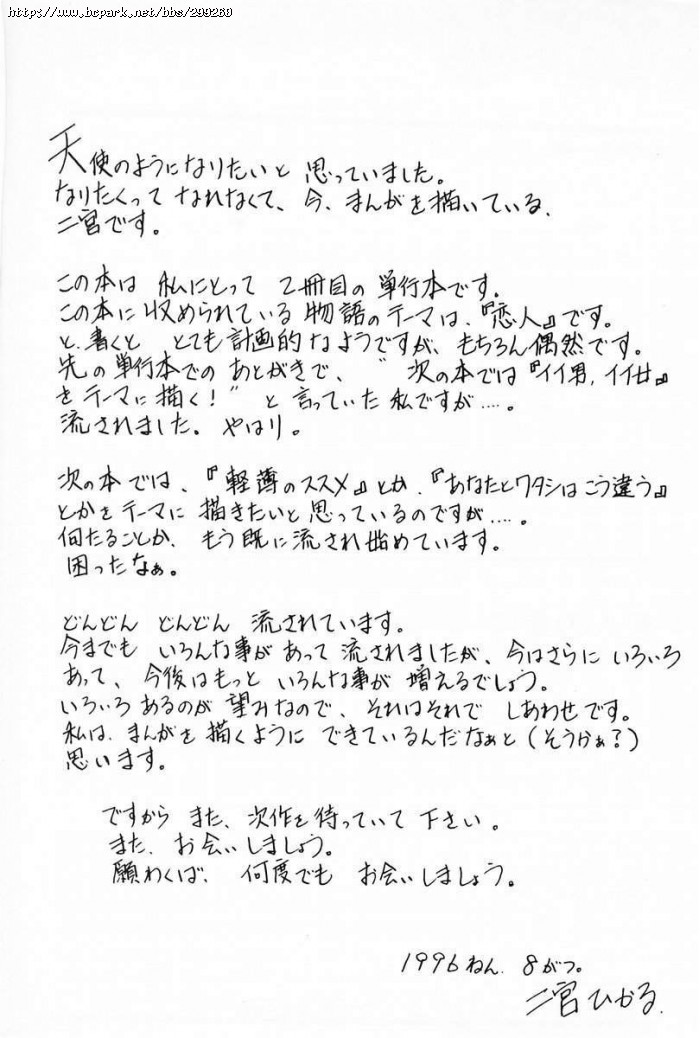 https://www.bcpark.net/bbs/299260
天使のようになりたいと 思っていました。
なりたくって なれなくて、今、まんがを描いている、
二宮です。
この本は 私にとって 2冊目の 単行本です。
この本に 収められている 物語のテーマは、『恋人』です。
と、書くと とても計画的なようですが、もちろん偶然です。
先の単行本でのあとがきで、〝 次の本では『イイ男、イイ女』
をテーマに描く!〟と 言っていた 私ですが‥‥。
流されました。やはり。
次の本では、『軽薄のススメ』とか、『あなたとワタシは こう違う』
とかをテーマに 描きたいと思っているのですが‥‥。
何たることか、もう既に流され始めています。
困ったなぁ。
どんどん どんどん 流されています。
今までも いろんな事が あって 流されましたが、今はさらに いろいろ
あって、今後はもっと いろんな事が 増えるでしょう。
いろいろ あるのが 望みなので、それはそれで しあわせです。
私は、まんがを 描くように できているんだなぁと(そうかぁ?)
思います。
ですから また、次作を待っていて 下さい。
また、お会いしましょう。
願わくば、何度でも お会いしましょう。
1996ねん、8がつ。
二宮ひかる、